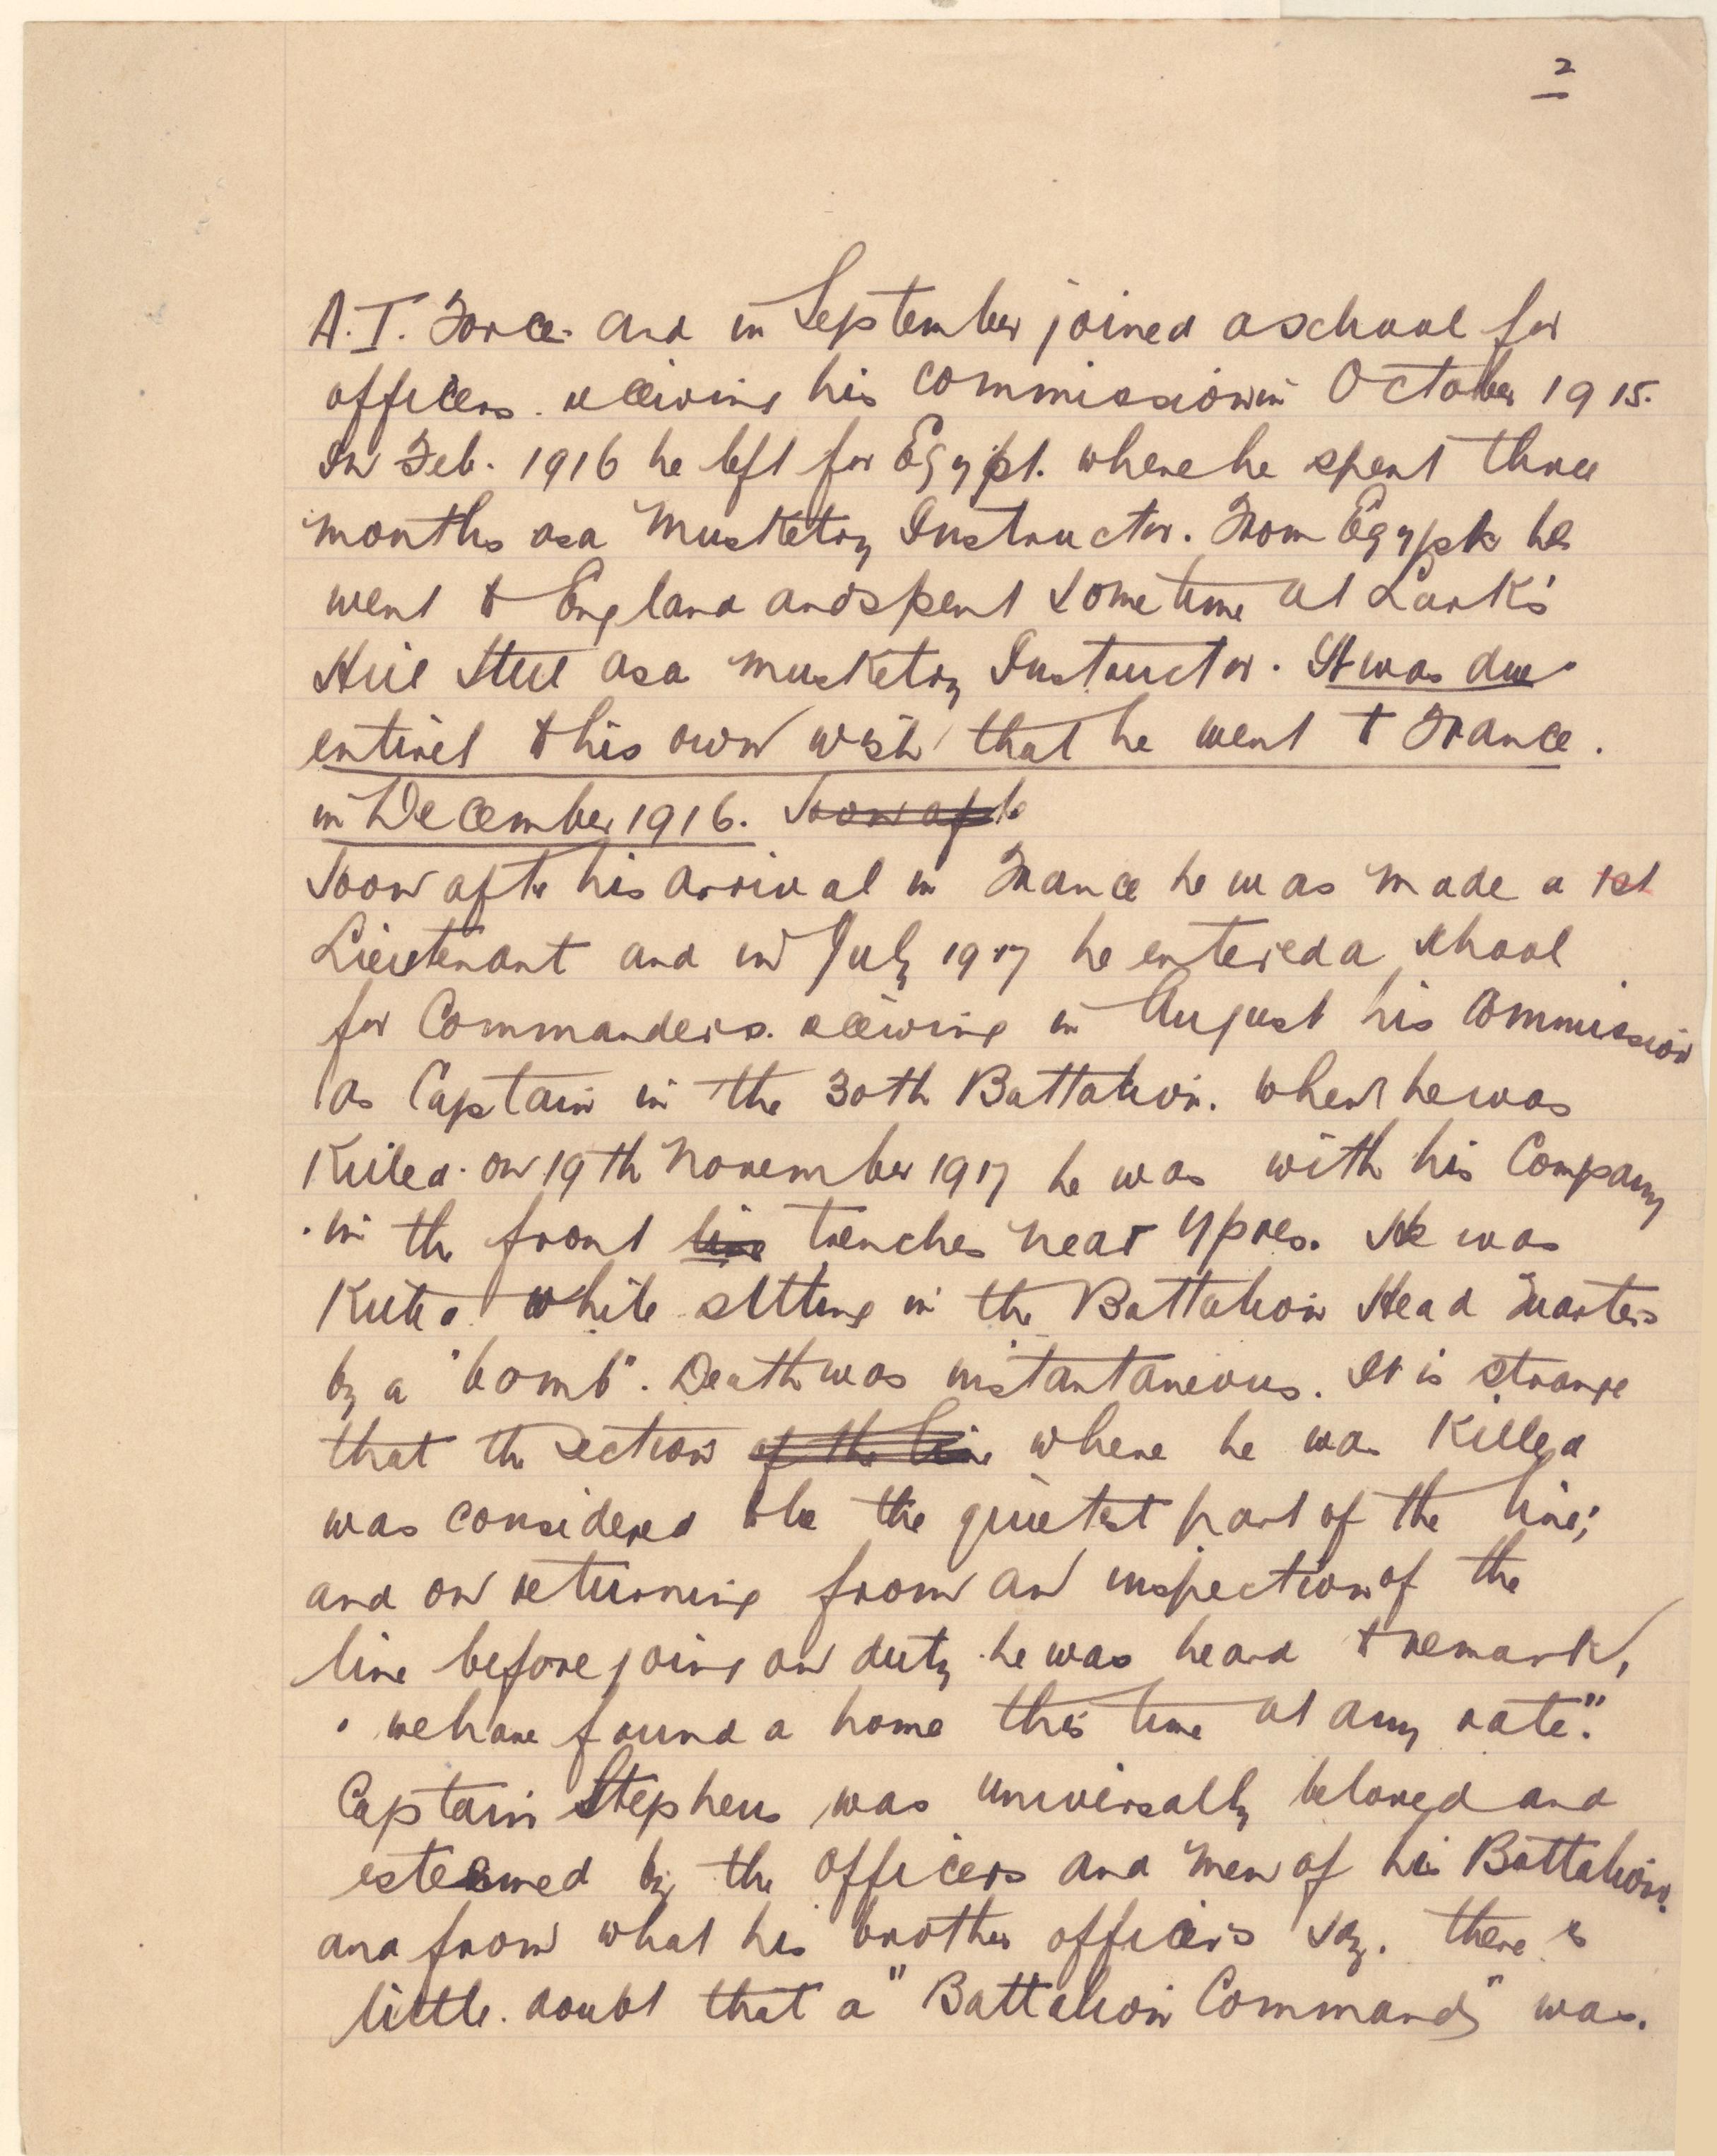 2
A.I. Force. and in September joined a school for
officers. receiving his commission in October 1915.
In Feb. 1916 he left for Egypt. where he spent three
months as a Musketry Instructor. From Egypt he
went to England and spent some time at Lark's
Hill Still as a musketry Instructor. It was due
entirel to his own wish that he went to France.
in December 1916. Soon afte
Soon after his arrival in France he was made a 1st
Lieutenant and in July 1917 he entered a school
for Commanders. receiving in August his commission
as Captain in the 30th Battalion. When he was
Killed. on 19th November 1917 he was with his Company
in the front line trenches near Ypres. He was
Killed while sitting in the Battalion Head Quarters
by a "bomb". Death was instantaneous. It is strange
that the section of the line where he was Killed
was considered to be the quietest part of the line;
and on returning from an inspection of the
line before going on duty he was heard to remark,
" we have found a home this time at any rate".
Captain Stephens was universally beloved and
esteemed by the officers and men of his Battalion.
and from what his brother officers say. there is
little. doubt that a "Battalion Command" was.